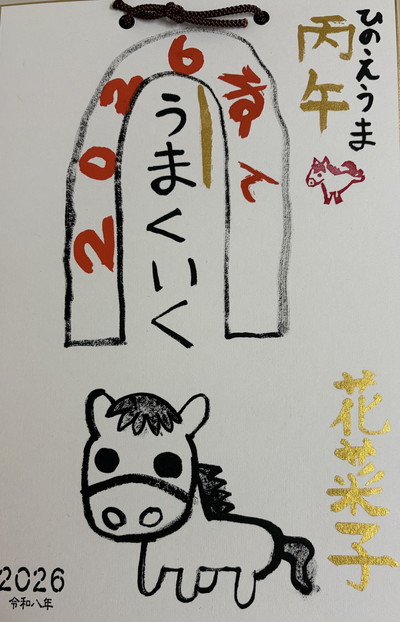 ひのえうま
丙午
2026ねん
うまくいく
花菜子
2026
令和八年